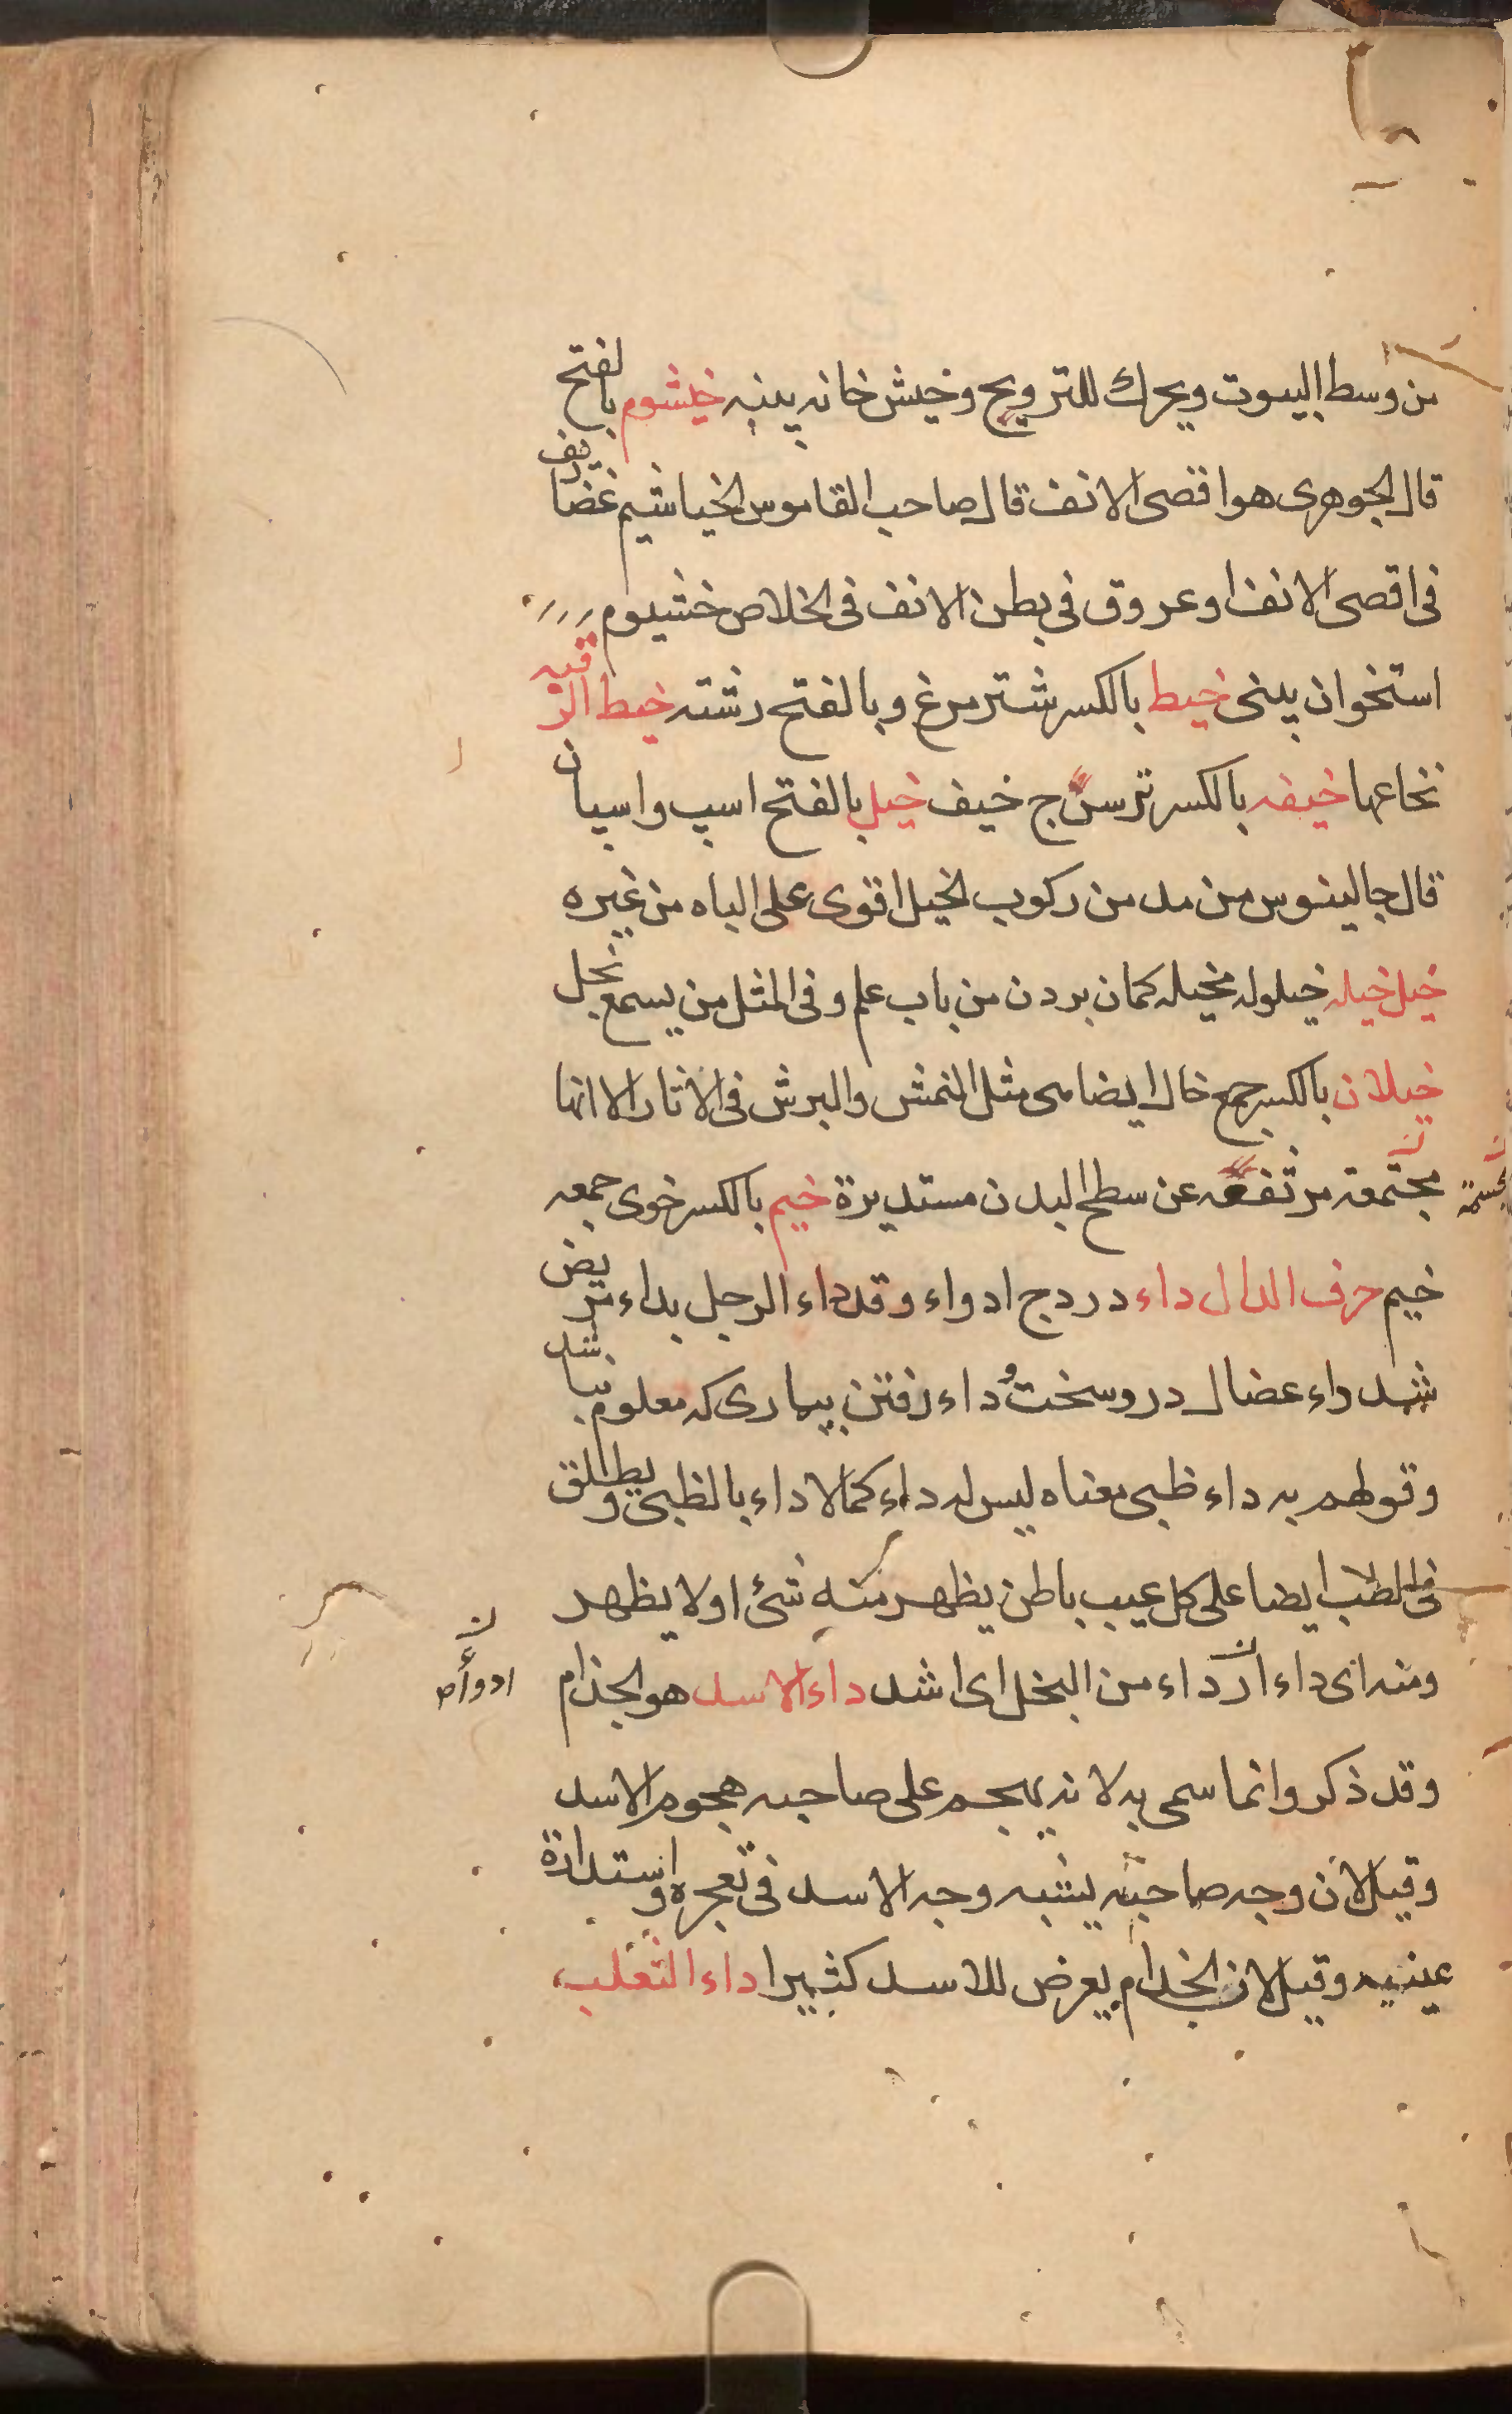 من وسط البيوت ويحرك للترويح وخيش خانه ينبه خيشوم بالفتح
قال الجوهرى هو اقصى الانف قال صاحب القاموس الخياشيم غضاريف
فى اقصى الانف او عروق فى بطن الانف فى الخلاص خشيوم
استخوان بينى خيط بالكسر شتر مرغ وبالفتح رشته خيط الرقبه
نخاعها خيفه بالكسر ترس ج خيف خيل بالفتح اسپ واسپان
قال جالينوس من مد من ركوب الخيل اقوى على الباه من غيره
خيل خيله خيلوله مخيله كمان بردن من باب علم وفى المثل من يسمع نحل
خيلان بالكسر جمع خال ايضا هى مثل النمش والبرش فى الاثار الا انها
مجتمعة مرتفعه عن سطح البدن مستديرة خيم بالكسر خوى جمعه
مجسمة ن
خيم حرف الدال داء درد ج ادواء وقد داء الرجل يداء مريض
شد داء عضال درد سخت و داء رفتن بيمارى كه معلوم نباشد
وقولهم به داء ظبى معناه ليس له داء كما لا داء بالظبى ويطلق
فى الطب ايضا على كل عيب باطن يظهر منه شئ او لا يظهر
ومنه اى داء ارداء من البخل اى اشد داء الاسد هو الجذام
ن ادوأ ص
وقد ذكر وانما سمى به لانه يهجم على صاحبه هجوم الاسد
وقيل لان وجه صاحبه يشبه وجه الاسد فى تعجره واستدارة
عينيه وقيل لان الجذام يعرض للاسد كثيرا داء الثعلب